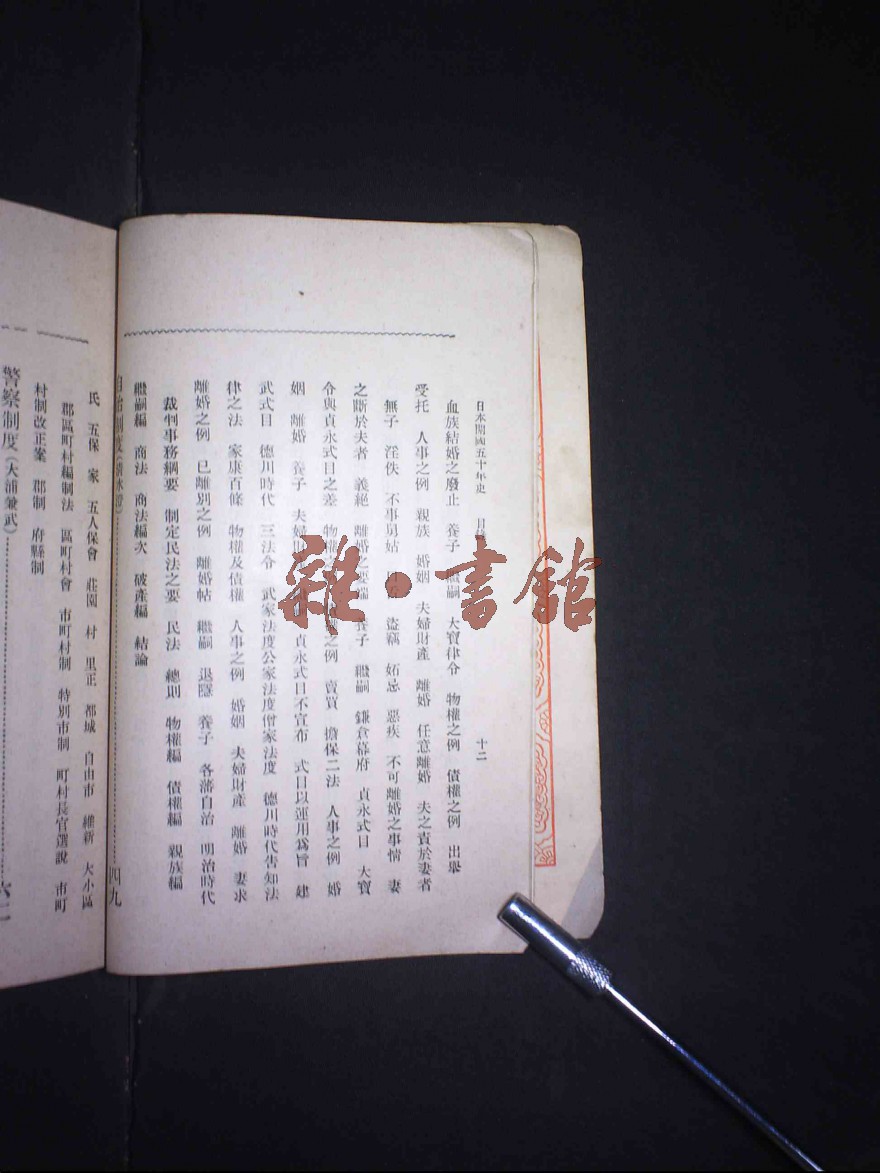 日本開國五十年史 目 十二
血族結婚之廢止 養子 繼嗣 大寶律令 物權之例 債權之例 出舉
受托 人事之例 親族 婚姻 夫婦財產 離婚 任意離婚 夫之責於妻者
無子 淫佚 不事舅姑 盜竊 妬忌 惡疾 不可離婚之事情 妻
之斷於夫者 義絕 離婚之要端 養子 繼嗣 鎌倉幕府 貞永式目 大寶
令與貞永式目之差 物權之例 賣買 擔保二法 人事之例 婚
姻 離婚 養子 夫婦財 貞永式目不宣布 式目以運用爲旨 建
武式目 德川時代 三法令 武家法度公家法度僧家法度 德川時代告知法
律之法 家康百條 物權及債權 人事之例 婚姻 夫婦財產 離婚 妻求
離婚之例 已離別之例 離婚帖 繼嗣 退隱 養子 各藩自治 明治時代
裁判事務綱要 制定民法之要 民法 總則 物權編 債權編 親族編
繼嗣編 商法 商法編次 破產編 結論
自治制度 四九
氏 五保 家 五人保會 莊園 村 里正 都城 自由市 維新 大小區
郡區町村編制法 區町村會 市町村制 特別市制 町村長官選說 市町
村制改正案 郡制 府縣制
警察制度(大浦兼武) 六一
雜·書館